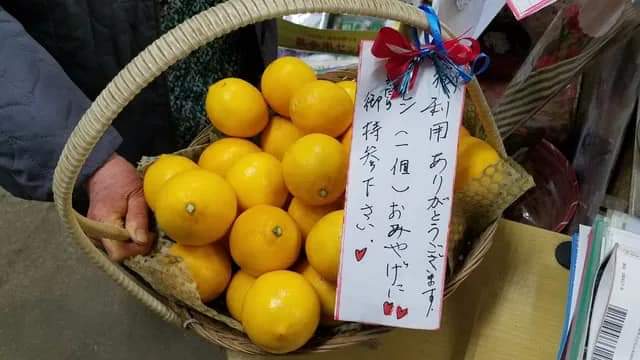 利用 ありがとうございます!
ン(一個)おみやげに
御持参下さい.